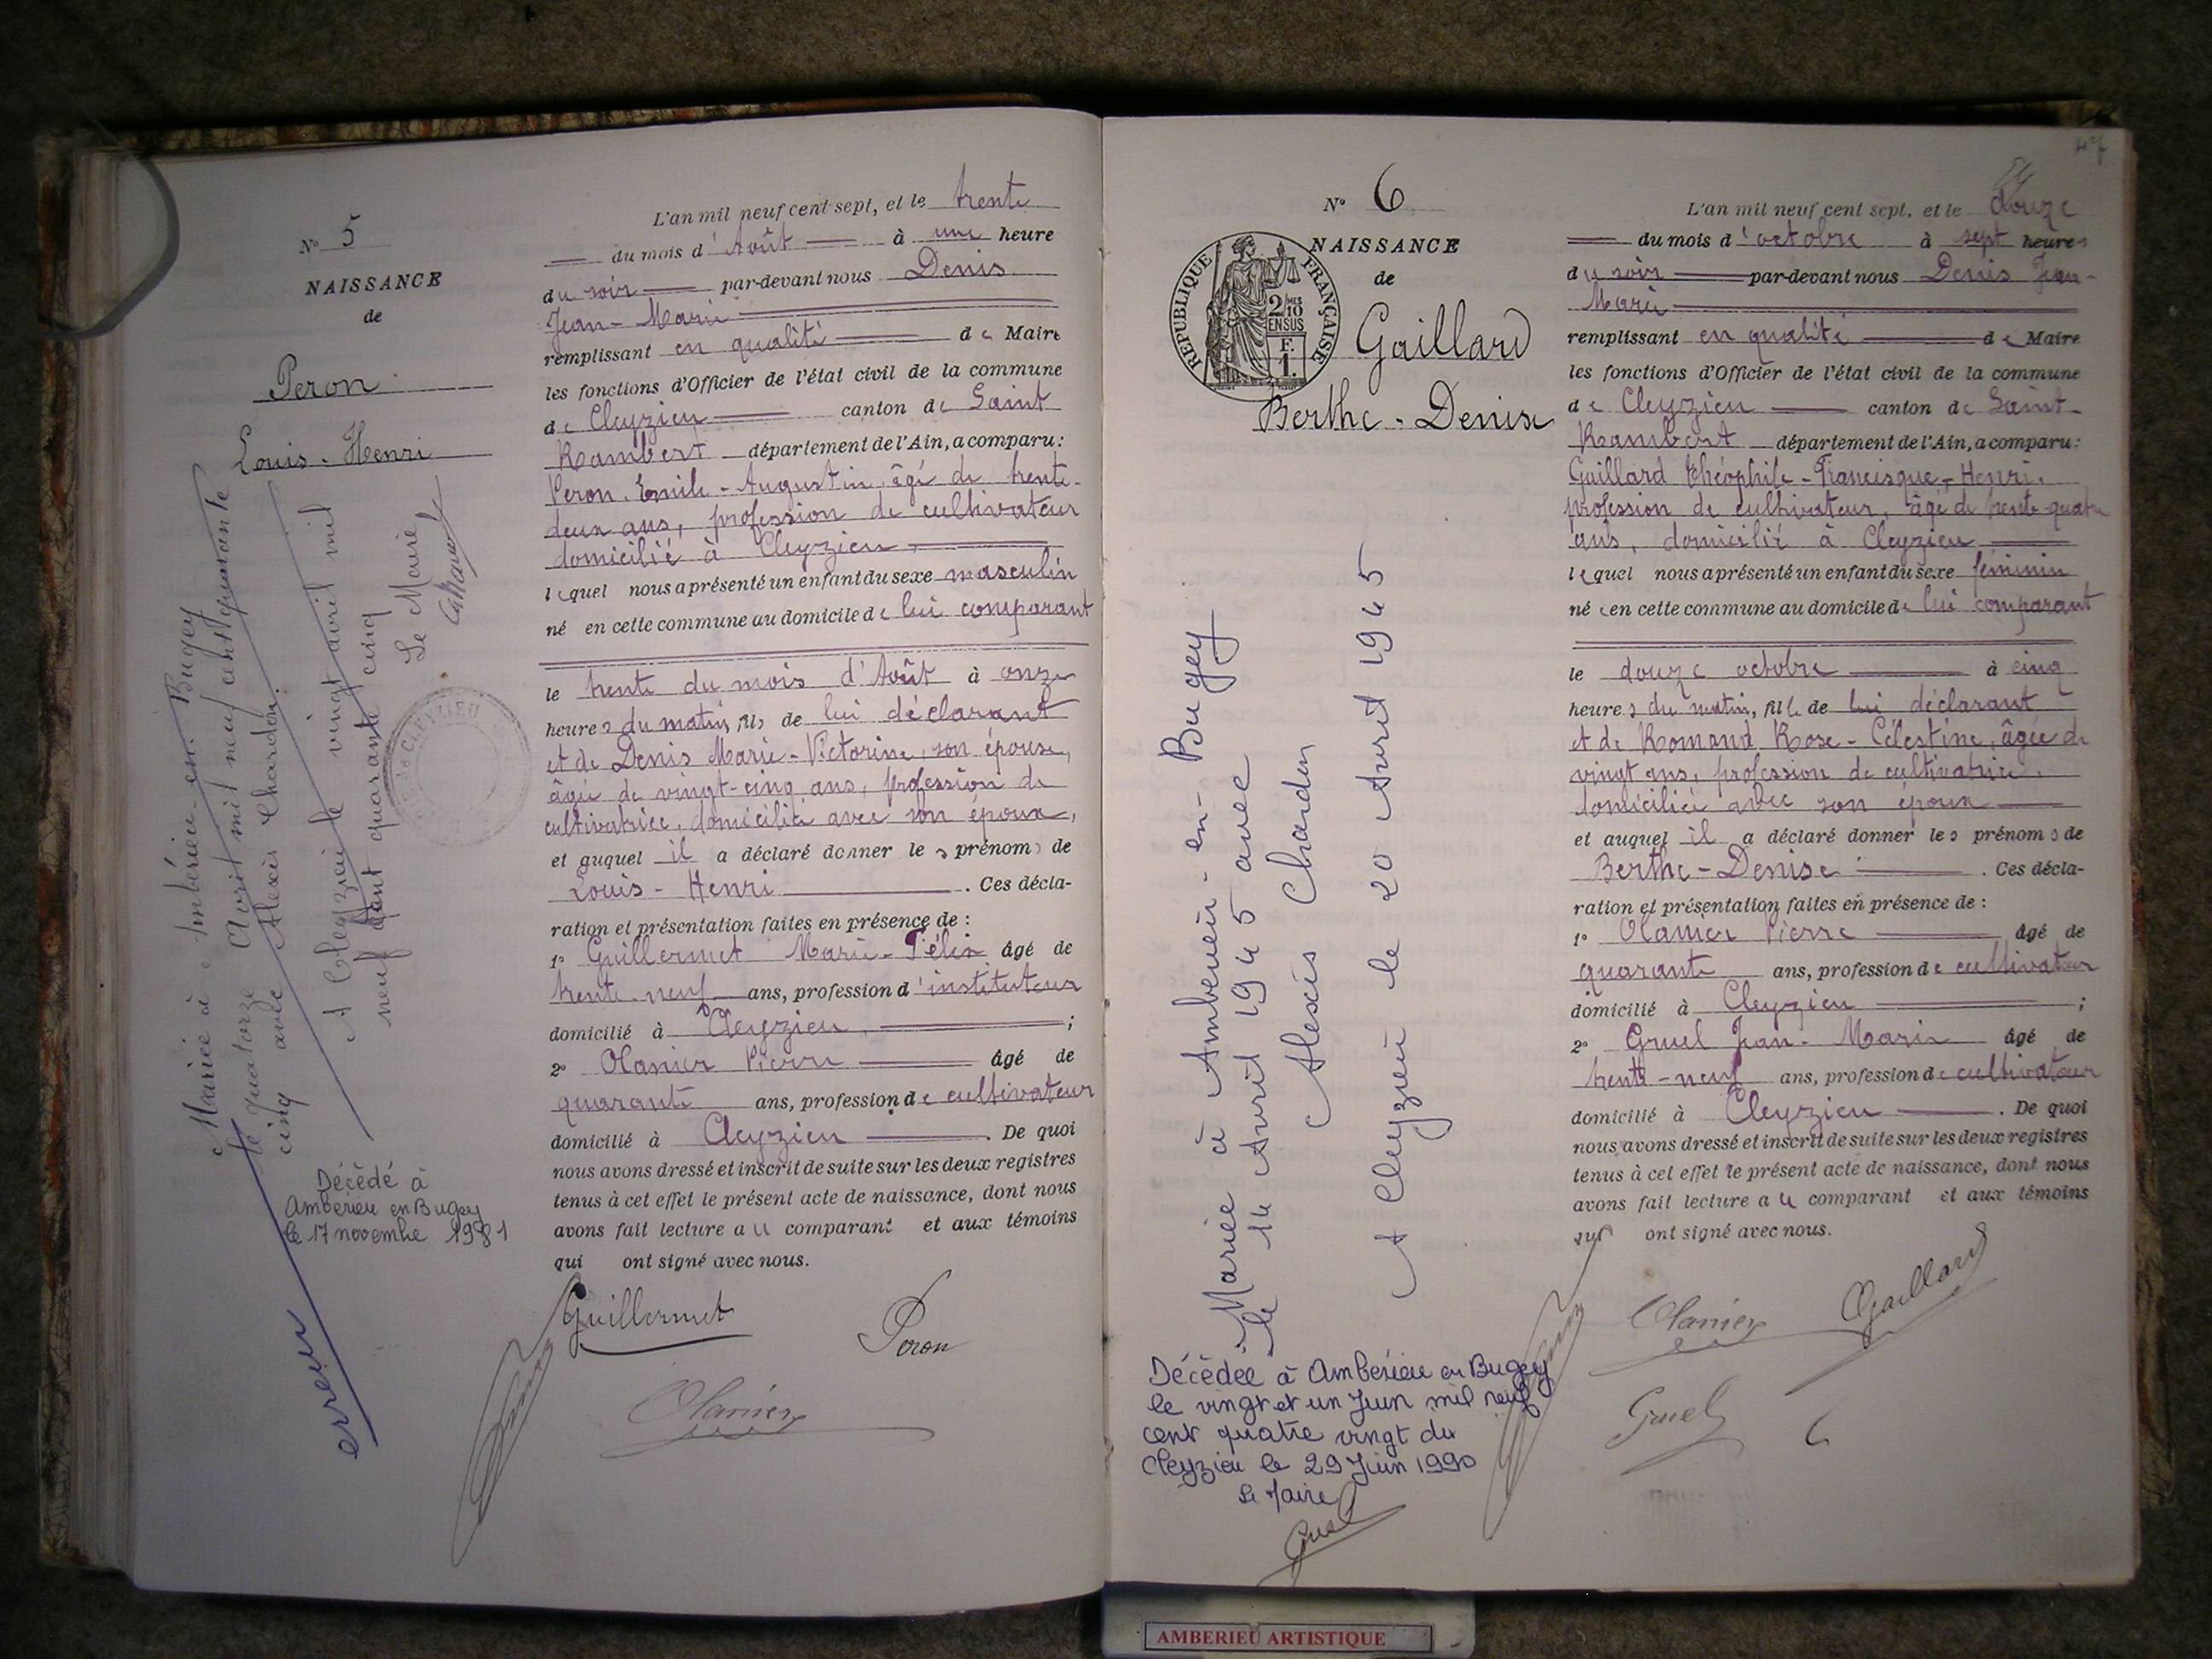 N° 5
NAISSANCE
de
Peron
Louis-Henri
Mariée à Ambérieu-en-Bugey
le quatorze Avril mil neuf cent quarante
cinq avec Alexis Chardon.
A Cleyzieu le vingt avril mil
neuf cent quarante cinq
Le Maire
DE CLEYZIEU
erreur
Décédé à
Amberieu en Bugey
le 17 novembre 1981
L'an mil neuf cent sept, et le trente
du mois d'Août à une heure
du soir par-devant nous Denis
Jean-Marie
remplissant en qualité de Maire
les fonctions d'Officier de l'état civil de la commune
de Cleyzieu canton de Saint
Rambert département de l'Ain, a comparu:
Peron Emile-Augustin, âgé de trente-
deux ans, profession de cultivateur
domicilié à Cleyzieu,
lequel nous a présenté un enfant du sexe masculin
né en cette commune au domicile de lui comparant
le trente du mois d'Août à onze
heures du matin, fils de lui déclarant
et de Denis Marie-Victorine, son épouse,
âgée de vingt-cinq ans, profession de
cultivatrice, domiciliée avec son époux,
et auquel il a déclaré donner les prénoms de
Louis-Henri. Ces décla-
ration et présentation faites en présence de :
1° Guillermet Marie-Félix âgé de
trente-neuf ans, profession d'instituteur
domicilié à Cleyzieu ;
2° Olanier Pierre âgé de
quarante ans, profession de cultivateur
domicilié à Cleyzieu. De quoi
nous avons dressé et inscrit de suite sur les deux registres
tenus à cet effet le présent acte de naissance, dont nous
avons fait lecture au comparant et aux témoins
qui ont signé avec nous.
Guillermet
Peron
Olanier
N° 6
NAISSANCE
de
RÉPUBLIQUE FRANÇAISE
2/10 MES
EN SUS
F.
1.
Gaillard
Berthe-Denise
Mariée à Amberieu-en-Bugey
le 14 Avril 1945 avec
Alexis Chardon
A Cleyzieu le 20 Avril 1945
Décédée à Ambérieu en Bugey
le vingt et un Juin mil neuf
cent quatre vingt dix
Cleyzieu le 29 Juin 1990
Le Maire
Gruel
47
L'an mil neuf cent sept, et le douze
du mois d'octobre à sept heures
du soir par-devant nous Denis Jean-
Marie
remplissant en qualité de Maire
les fonctions d'Officier de l'état civil de la commune
de Cleyzieu canton de Saint-
Rambert département de l'Ain, a comparu:
Gaillard Théophile-Francisque-Henri,
profession de cultivateur, âgé de trente-quatre
ans, domicilié à Cleyzieu
lequel nous a présenté un enfant du sexe féminin
née en cette commune au domicile de lui comparant
le douze octobre à cinq
heures du matin, fille de lui déclarant
et de Romand Rose-Célestine, âgée de
vingt ans, profession de cultivatrice,
domiciliée avec son époux
et auquel il a déclaré donner les prénoms de
Berthe-Denise. Ces décla-
ration et présentation faites en présence de :
1° Olanier Pierre âgé de
quarante ans, profession de cultivateur
domicilié à Cleyzieu ;
2° Gruel Jean-Marie âgé de
trente-neuf ans, profession de cultivateur
domicilié à Cleyzieu. De quoi
nous avons dressé et inscrit de suite sur les deux registres
tenus à cet effet le présent acte de naissance, dont nous
avons fait lecture au comparant et aux témoins
qui ont signé avec nous.
Olanier
Gaillard
Gruel
AMBERIEU ARTISTIQUE